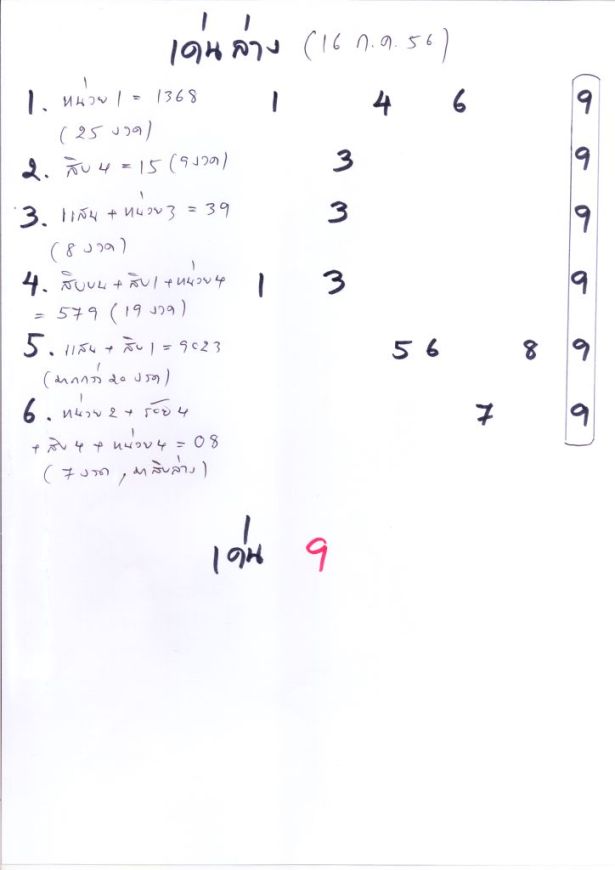 เด่นล่าง (16 ก.ค. 56)
1. หน่วย 1 = 1368 1 4 6 9
(25 งวด)
2. สิบ 4 = 15 (9 งวด) 3 9
3. แสน + หน่วย 3 = 39 3 9
(8 งวด)
4. สิบบน + สิบ 1 + หน่วย 4 1 3 9
= 579 (19 งวด)
5. แสน + สิบ 1 = 9023 5 6 8 9
(มากกว่า 20 งวด)
6. หน่วย 2 + ร้อย 4 7 9
+ สิบ 4 + หน่วย 4 = 08
(7 งวด, มาสิบล่าง)
เด่น 9